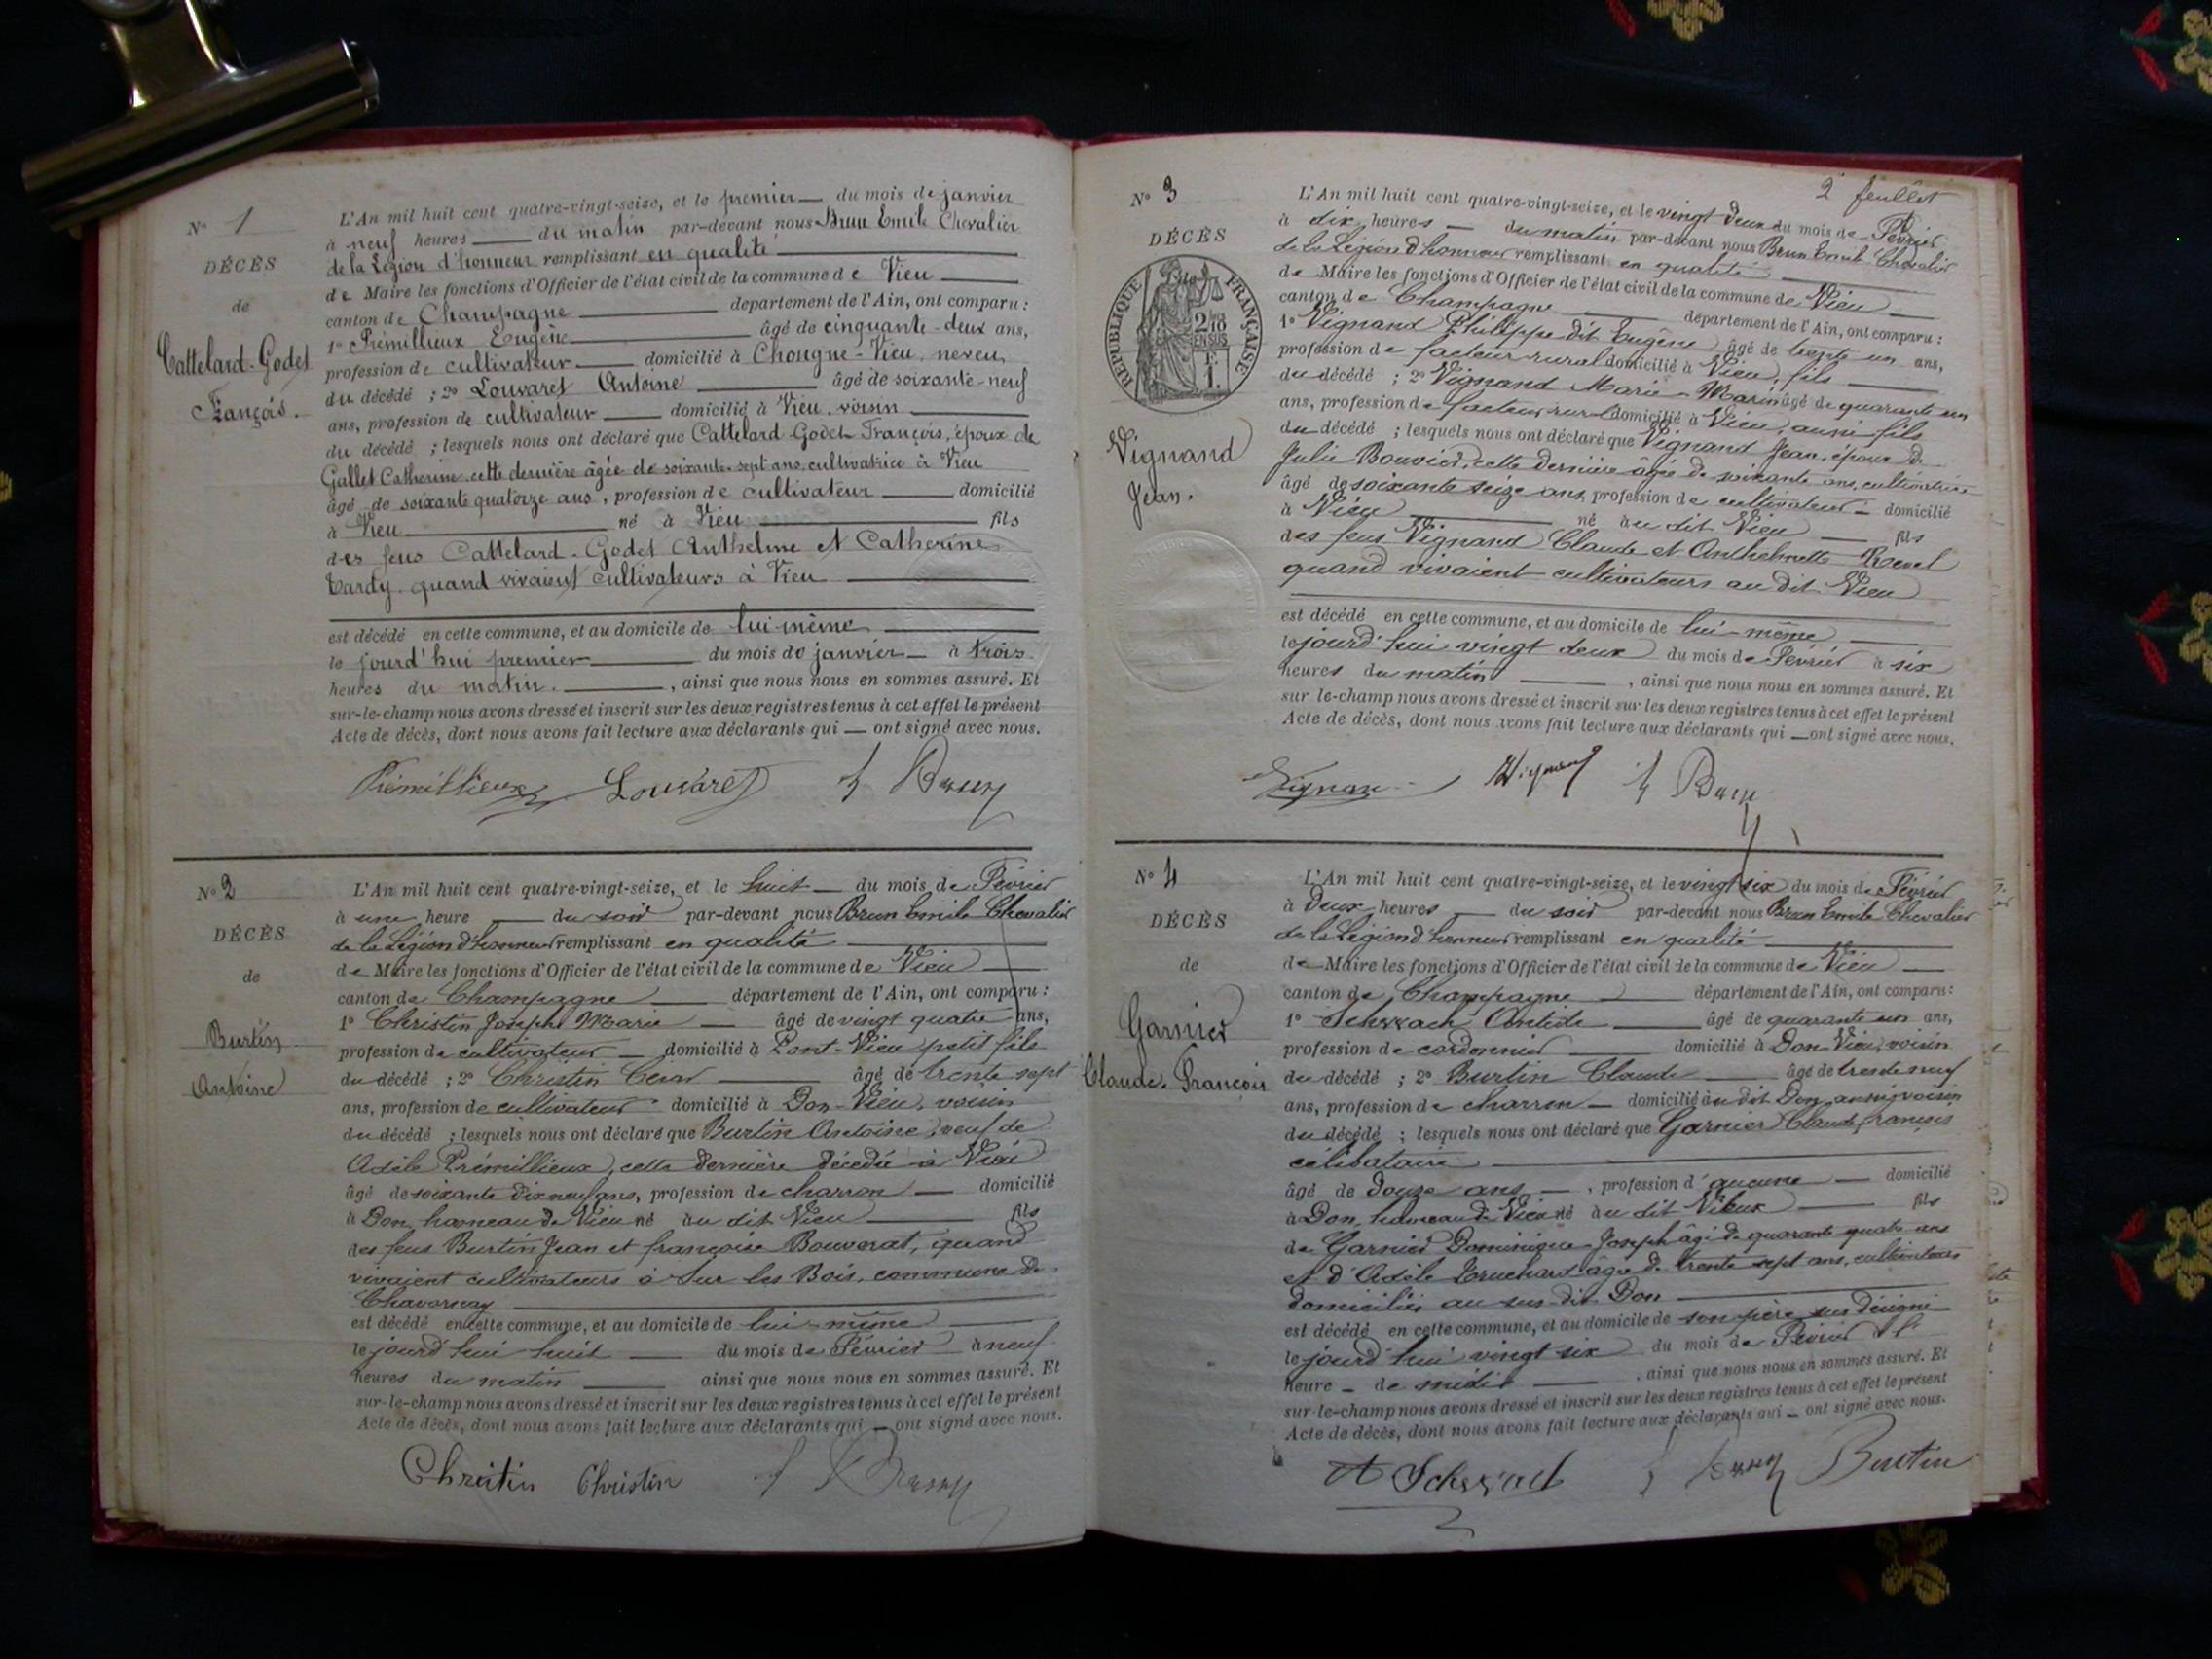 N° 1
DÉCÈS
de
Cattelard-Godet
François.
L'An mil huit cent quatre-vingt-seize, et le premier du mois de janvier
à neuf heures du matin par-devant nous Brun Emile Chevalier
de la Légion d'honneur remplissant en qualité
de Maire les fonctions d'Officier de l'état civil de la commune de Vieu
canton de Champagne département de l'Ain, ont comparu :
1° Prémillieux Eugène âgé de cinquante-deux ans,
profession de cultivateur domicilié à Chougne-Vieu, neveu
du décédé ; 2° Louvaret Antoine âgé de soixante-neuf
ans, profession de cultivateur domicilié à Vieu, voisin
du décédé ; lesquels nous ont déclaré que Cattelard-Godet François, époux de
Gallet Catherine, cette dernière âgée de soixante-sept ans, cultivatrice à Vieu
âgé de soixante quatorze ans, profession de cultivateur domicilié
à Vieu né à Vieu fils
des feus Cattelard-Godet Anthelme et Catherine
Tardy, quand vivaient cultivateurs à Vieu
est décédé en cette commune, et au domicile de lui même
le jourd'hui premier du mois de janvier à trois
heures du matin, ainsi que nous nous en sommes assuré. Et
sur-le-champ nous avons dressé et inscrit sur les deux registres tenus à cet effet le présent
Acte de décès, dont nous avons fait lecture aux déclarants qui — ont signé avec nous.
Prémillieux Louvaret Brun
N° 2
DÉCÈS
de
Burtin
Antoine
L'An mil huit cent quatre-vingt-seize, et le huit du mois de Février
à une heure du soir par-devant nous Brun Emile Chevalier
de la Légion d'honneur remplissant en qualité
de Maire les fonctions d'Officier de l'état civil de la commune de Vieu
canton de Champagne département de l'Ain, ont comparu :
1° Christin Joseph Marie âgé de vingt quatre ans,
profession de cultivateur domicilié à Pont-Vieu petit fils
du décédé ; 2° Christin âgé de trente sept
ans, profession de cultivateur domicilié à Don-Vieu, voisin
du décédé ; lesquels nous ont déclaré que Burtin Antoine, veuf de
Adèle Prémillieux, cette dernière décédée à Vieu
âgé de soixante dix neuf ans, profession de charron domicilié
à Don, hameau de Vieu né au dit Vieu fils
des feus Burtin Jean et françoise Bouverat, quand
vivaient cultivateurs à Sur les Bois, commune de
Chavornay
est décédé en cette commune, et au domicile de lui-même
le jourd'hui huit du mois de Février à neuf
heures du matin ainsi que nous nous en sommes assuré. Et
sur-le-champ nous avons dressé et inscrit sur les deux registres tenus à cet effet le présent
Acte de décès, dont nous avons fait lecture aux déclarants qui — ont signé avec nous.
Christin Christin Brun
2e feuillet
N° 3
DÉCÈS
RÉPUBLIQUE FRANÇAISE
2/10 EN SUS
1 F.
Vignand
Jean.
L'An mil huit cent quatre-vingt-seize, et le vingt deux du mois de Février
à dix heures du matin par-devant nous Brun Emile Chevalier
de la Légion d'honneur remplissant en qualité
de Maire les fonctions d'Officier de l'état civil de la commune de Vieu
canton de Champagne département de l'Ain, ont comparu :
1° Vignand Philippe dit Eugène âgé de trente un ans,
profession de facteur rural domicilié à Vieu, fils
du décédé ; 2° Vignand Marie-Marin âgé de quarante un
ans, profession de facteur rural domicilié à Vieu, aussi fils
du décédé ; lesquels nous ont déclaré que Vignand Jean, époux de
Julie Bouvier, cette dernière âgée de soixante ans, cultivatrice
âgé de soixante seize ans, profession de cultivateur domicilié
à Vieu né au dit Vieu fils
des feus Vignand Claude et Anthelmette Revel
quand vivaient cultivateurs au dit Vieu
est décédé en cette commune, et au domicile de lui-même
le jourd'hui vingt deux du mois de Février à six
heures du matin, ainsi que nous nous en sommes assuré. Et
sur le-champ nous avons dressé et inscrit sur les deux registres tenus à cet effet le présent
Acte de décès, dont nous avons fait lecture aux déclarants qui — ont signé avec nous.
Vignand Brun
N° 4
DÉCÈS
de
Garnier
Claude-François
L'An mil huit cent quatre-vingt-seize, et le vingt six du mois de Février
à deux heures du soir par-devant nous Brun Emile Chevalier
de la Légion d'honneur remplissant en qualité
de Maire les fonctions d'Officier de l'état civil de la commune de Vieu
canton de Champagne département de l'Ain, ont comparu :
1° âgé de quarante un ans,
profession de cordonnier domicilié à Don Vieu, voisin
du décédé ; 2° Burtin Claude âgé de trente neuf
ans, profession de charron domicilié au dit Don, aussi voisin
du décédé ; lesquels nous ont déclaré que Garnier Claude françois
célibataire
âgé de douze ans, profession d'aucune domicilié
à Don, hameau de Vieu né au dit Vieux fils
de Garnier Dominique-Joseph âgé de quarante quatre ans
et d'Adèle âgée de trente sept ans, cultivateurs
domiciliés au sus-dit Don
est décédé en cette commune, et au domicile de son père sus désigné
le jourd'hui vingt six du mois de Février à l'
heure de midi, ainsi que nous nous en sommes assuré. Et
sur-le-champ nous avons dressé et inscrit sur les deux registres tenus à cet effet le présent
Acte de décès, dont nous avons fait lecture aux déclarants qui — ont signé avec nous.
Brun Burtin